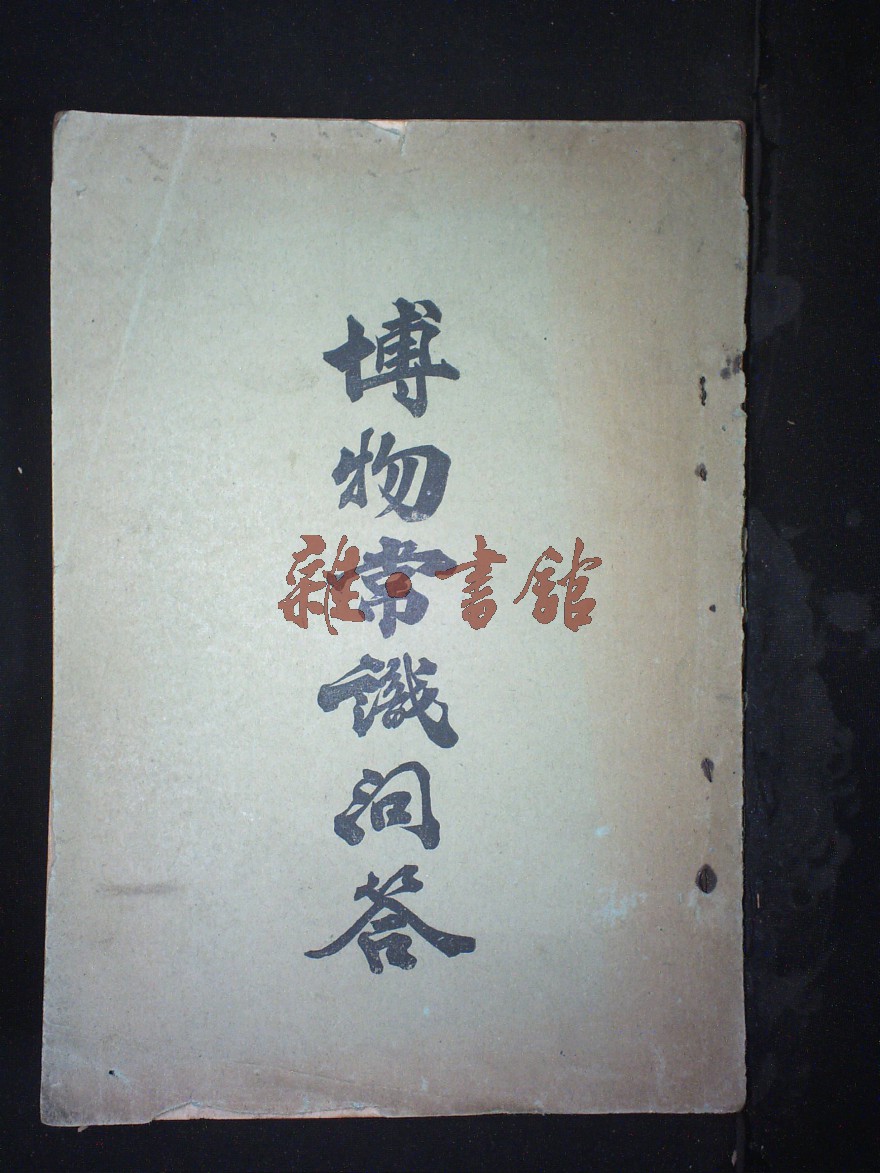 博物常識問答
雜·書館